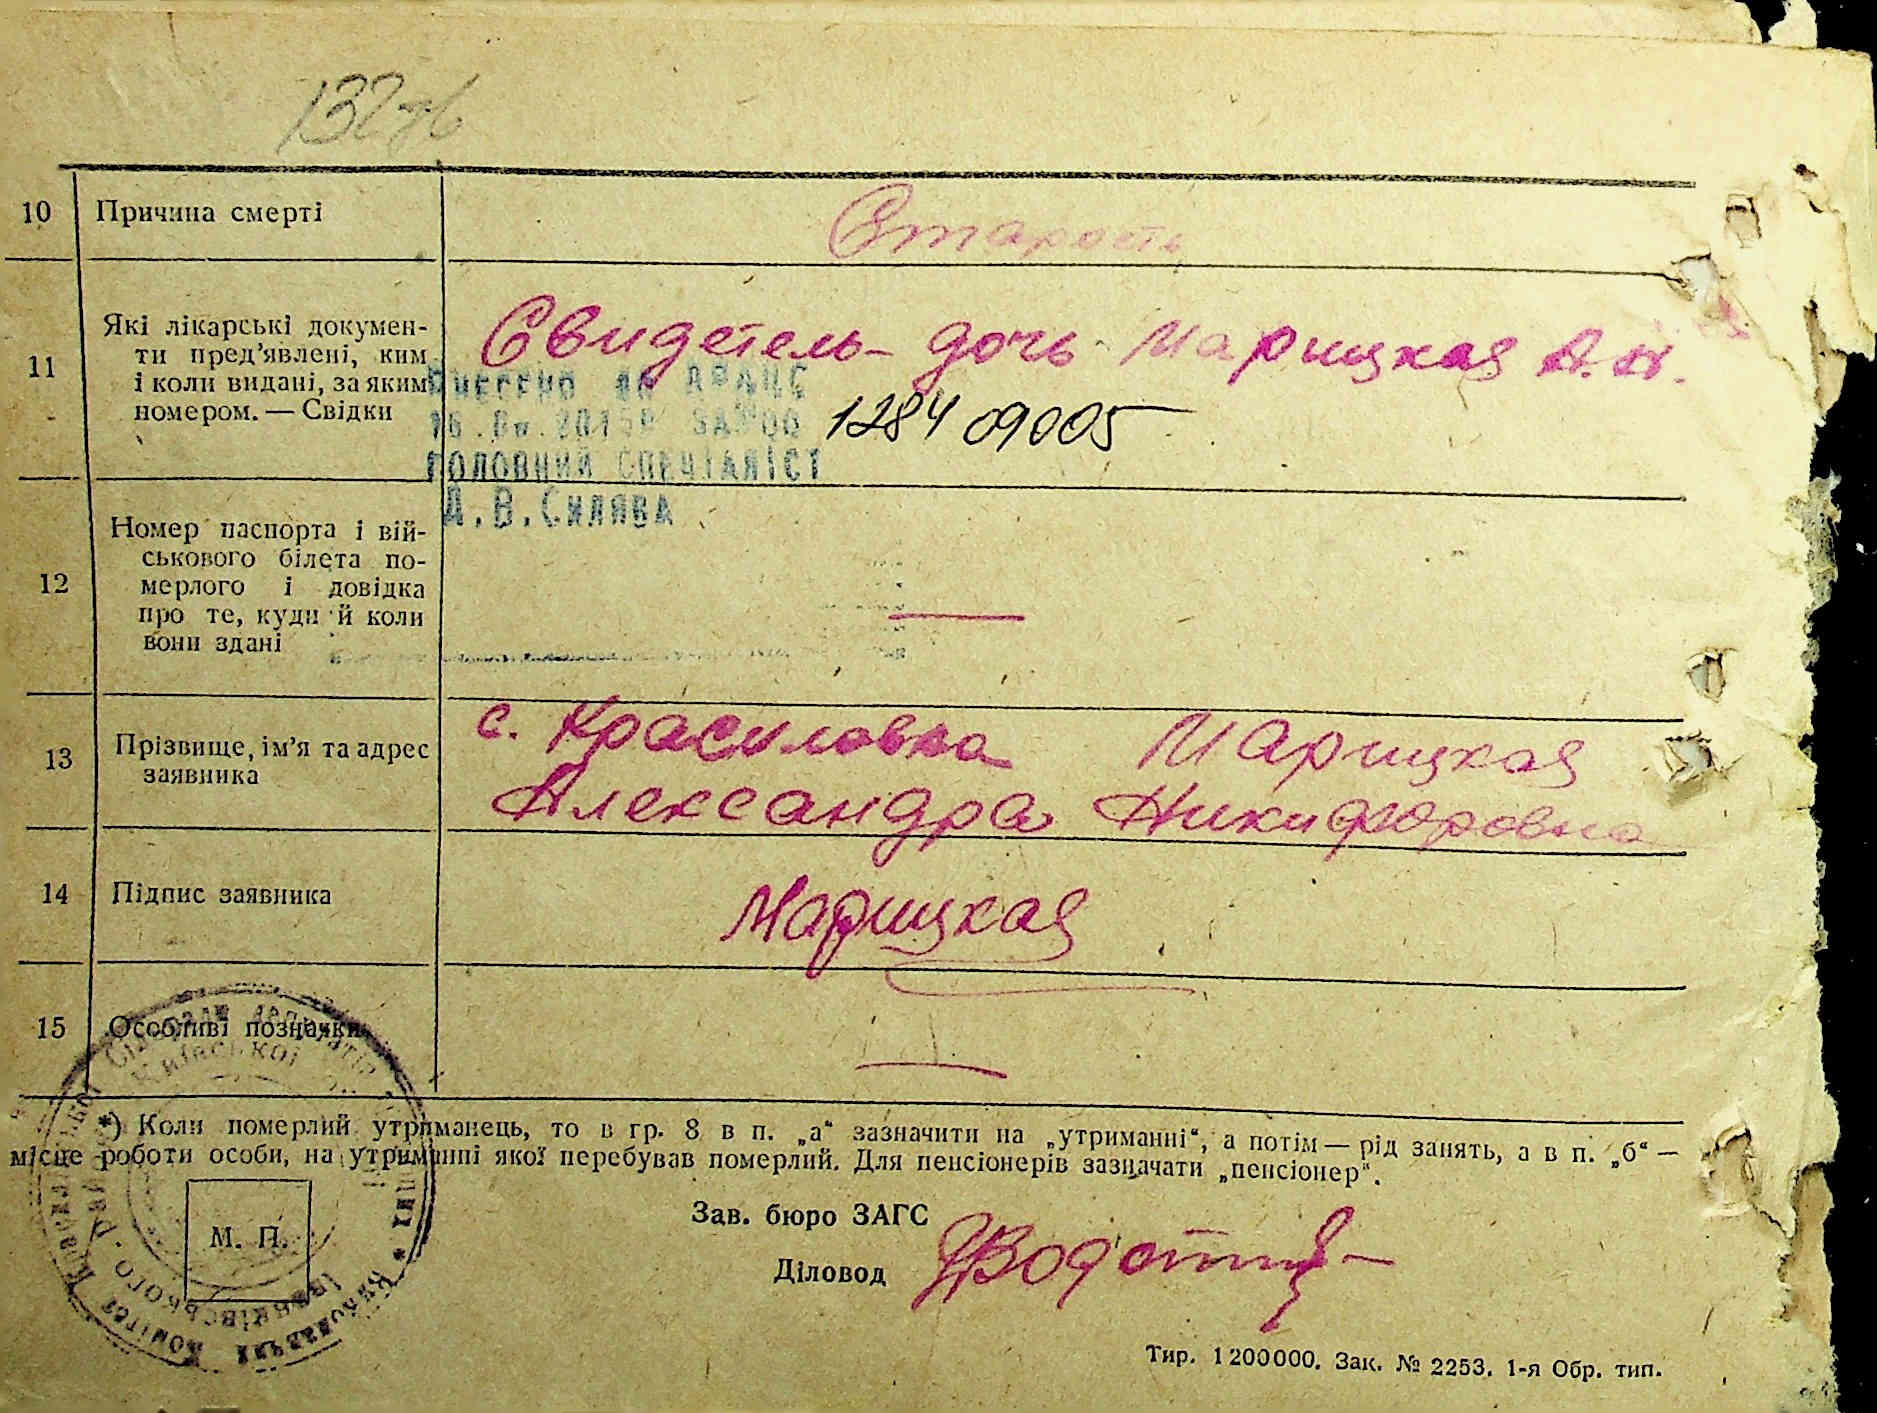 132
10 Причина смерті
Старость
11 Які лікарські докумен-
ти пред’явлені, ким
і коли видані, за яким
номером. — Свідки
Свидетель - дочь Марицкая А.Н.
1284 09005
Внесено до ДРАЦС
ГОЛОВНИЙ СПЕЦІАЛІСТ
12 Номер паспорта і вій-
ськового білета по-
мерлого і довідка
про те, куди й коли
вони здані
—
13 Прізвище, ім’я та адрес
заявника
с. Красиловка Марицкая
Александра Никифоровна
14 Підпис заявника
Марицкая
15 Особливі позначки
—
*) Коли померлий утриманець, то в гр. 8 в п. „а“ зазначити на „утриманні“, а потім — рід занять, а в п. „б“ —
місце роботи особи, на утриманні якої перебував померлий. Для пенсіонерів зазначати „пенсіонер“.
Зав. бюро ЗАГС
Діловод
М. П.
Київської
Виконавчий Комітет
Іванківського
Тир. 1200000. Зак. № 2253. 1-я Обр. тип.